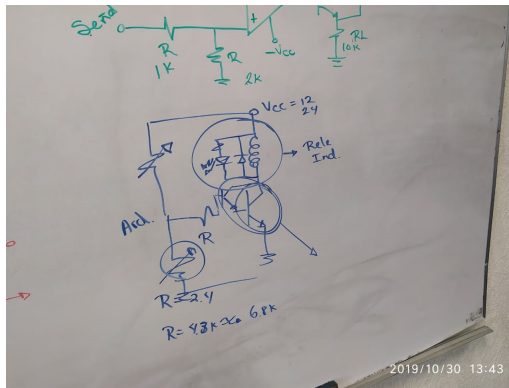 Señal
R
1K
R
2K
+
-Vcc
RL
10K
Vcc = 12
24
Rele
Ind.
Ard.
R
R = 2.4
2019/10/30 13:43